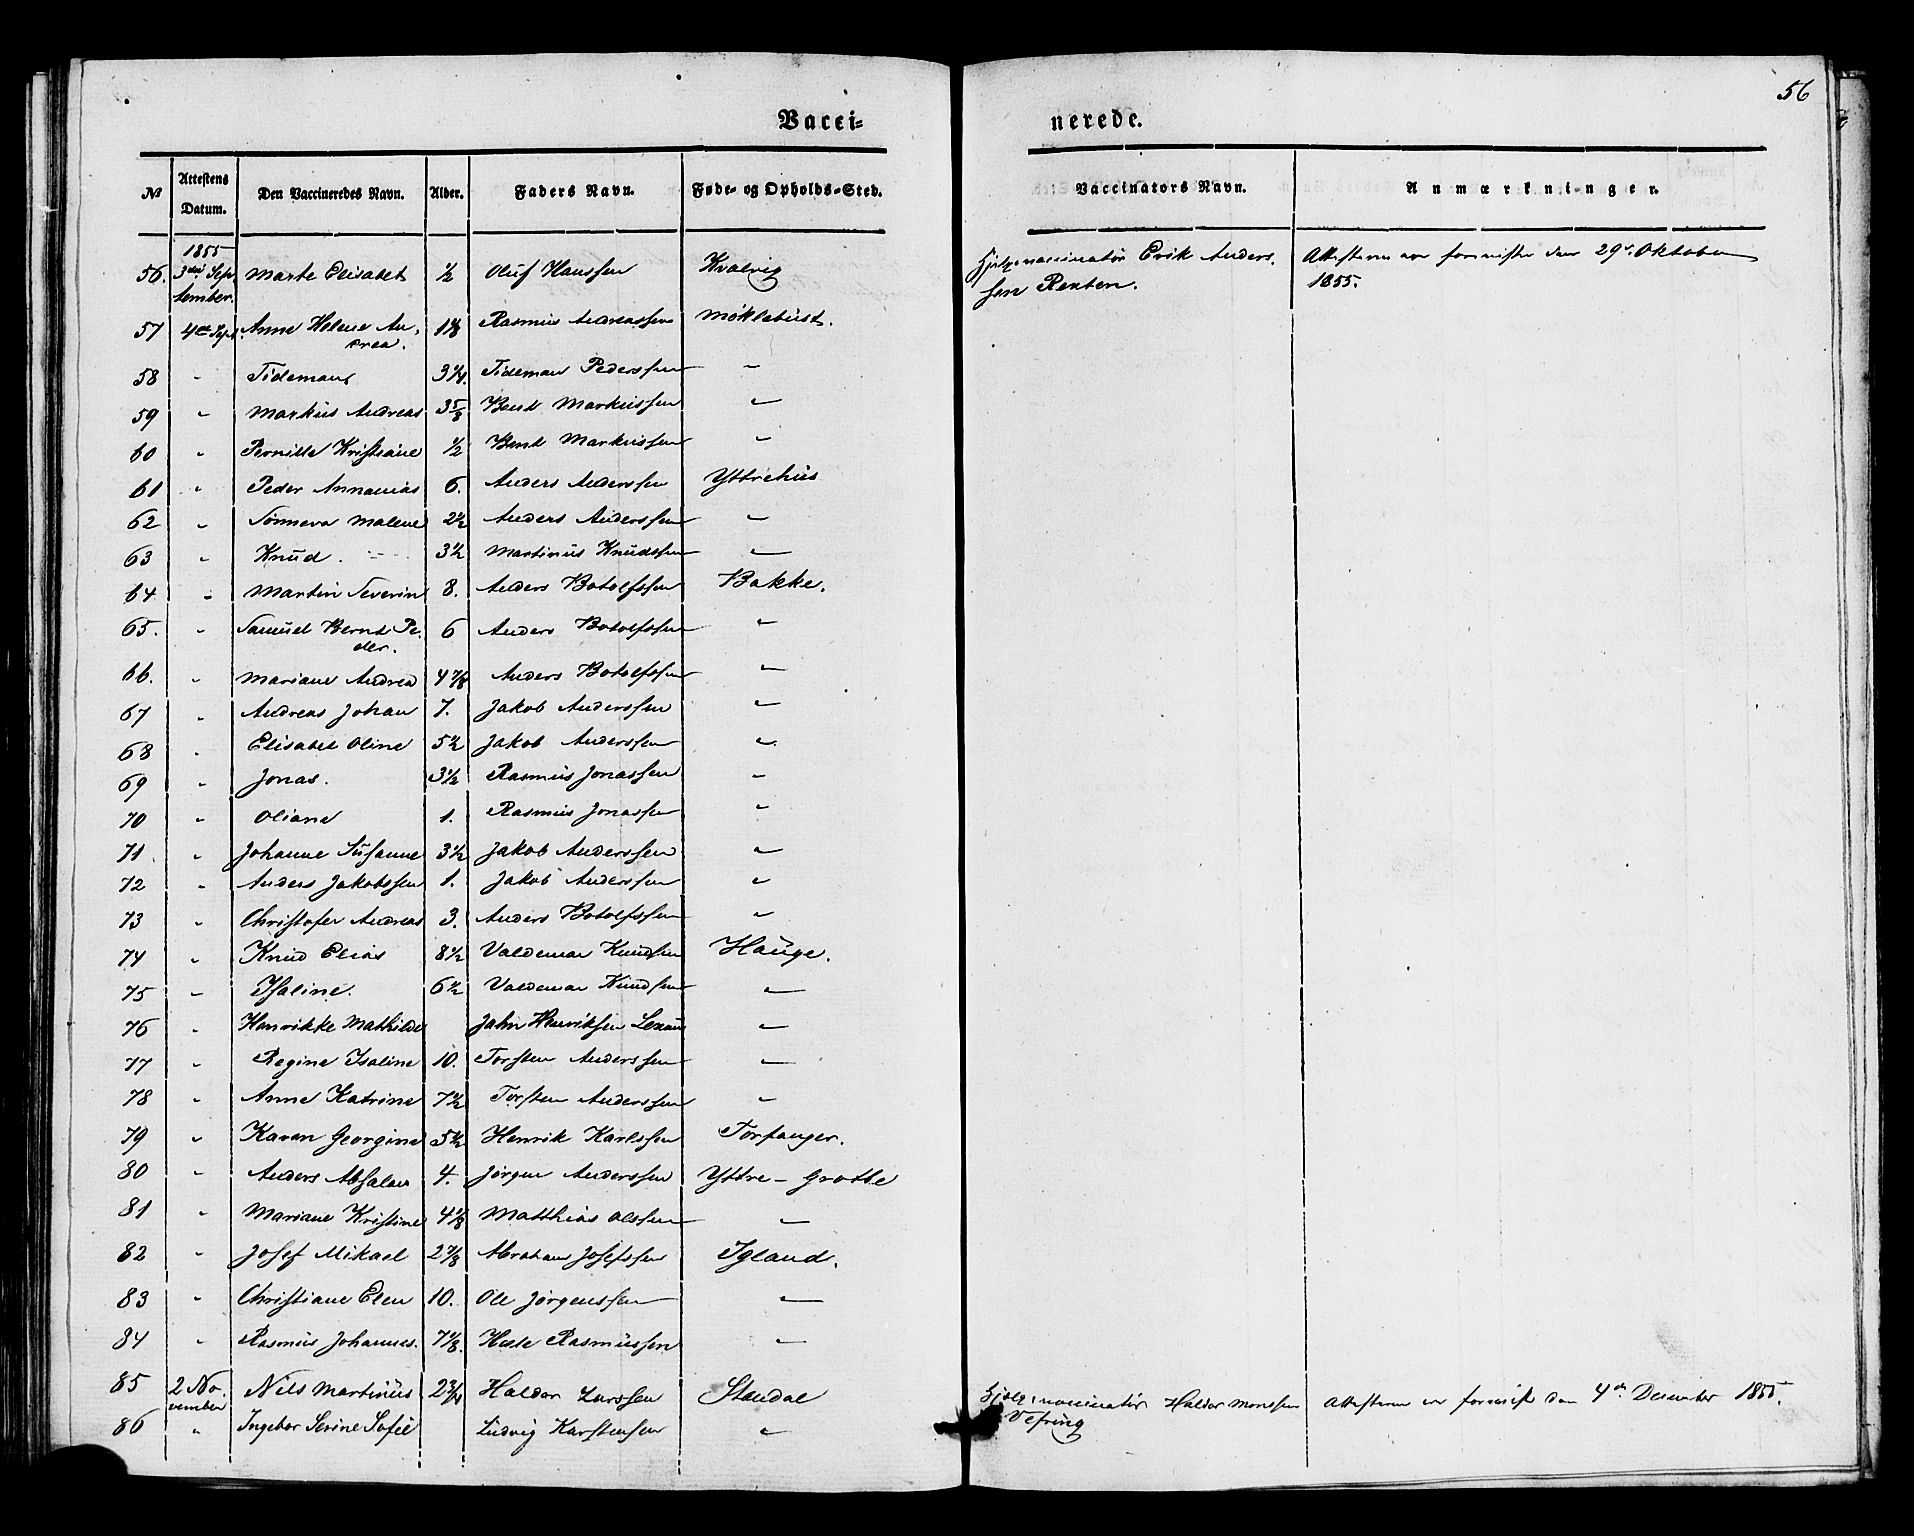 56
Vacci=
nerede.
№ | Attestens Datum. | Den Vaccineredes Navn. | Alder. | Faders Navn. | Føde- og Opholds-Sted. | Vaccinators Navn. | Anmærkninger.
1855
56. | 3die Sep- | Marte Elisabet | ½ | Oluf Hanssen | Kvalvig | Hjelpevaccinatør Erik Anders- | Attesterne ere foreviste den 29de Oktober
tember. | sen Rexten. | 1855.
57 | 4de Sept. | Anne Helene An- | 1⅛ | Rasmus Andreassen | Møklebust.
drea.
58 | " | Tideman | 3¼. | Tideman Pederssen | "
59 | " | Markus Andreas | 3⅝ | Bend Markussen | "
60 | " | Pernille Kristiane | ½ | Bend Markussen | "
61 | " | Peder Annanias | 6. | Anders Anderssen | Yttrehus
62 | " | Sønneva Malene | 2½ | Anders Anderssen | "
63 | " | Knud. | 3½ | Martinus Knudssen | "
64 | " | Martin Severin | 8. | Anders Botolfssen | Bakke.
65. | " | Samuel Bernt Pe- | 6 | Anders Botolfssen | "
der.
66. | " | Mariane Andrea | 4⅞ | Anders Botolfssen | "
67 | " | Andreas Johan | 7. | Jakob Anderssen | "
68 | " | Elisabet Oline | 5½ | Jakob Anderssen | "
69 | " | Jonas. | 3½ | Rasmus Jonassen | "
70 | " | Oliane | 1. | Rasmus Jonassen | "
71 | " | Johanne Susanne | 3½ | Jakob Anderssen | "
72 | " | Anders Jakobssen | 1. | Jakob Anderssen | "
73 | " | Christofer Andreas | 3. | Anders Botolfssen | "
74 | " | Knud Elias | 8½ | Valdemar Knudsen | Hauge.
75 | " | Isaline. | 6½ | Valdemar Knudsen | "
76 | " | Henrikke Mathilde | Jahn Henriksen | "
77 | " | Regine Isaline | 10. | Torsten Anderssen | "
78 | " | Anne Katrine | 7½ | Torsten Anderssen | "
79 | " | Karen Georgine | 5½ | Henrik Karlssen | Torfanger.
80 | " | Anders Absalon | 4. | Jørgen Anderssen | Yttre-Grotle
81 | " | Mariane Kristine | 4⅛ | Matthias Olssen | "
82 | " | Josef Mikael | 2⅞ | Abraham Josefssen | Igland.
83 | " | Christiane Elen | 10. | Ole Jørgenssen | "
84 | " | Rasmus Johannes. | 7⅛. | Rasmussen | "
85 | 2 No- | Nils Martinus | 2¾ | Haldor Larssen | Standal | Hjelpevaccinatør Haldor Monssen | Attesterne ere forevist den 4de December 1855.
vember | Vefring
86 | " | Ingebor Serine Sofie | Ludvig Karstensen | "